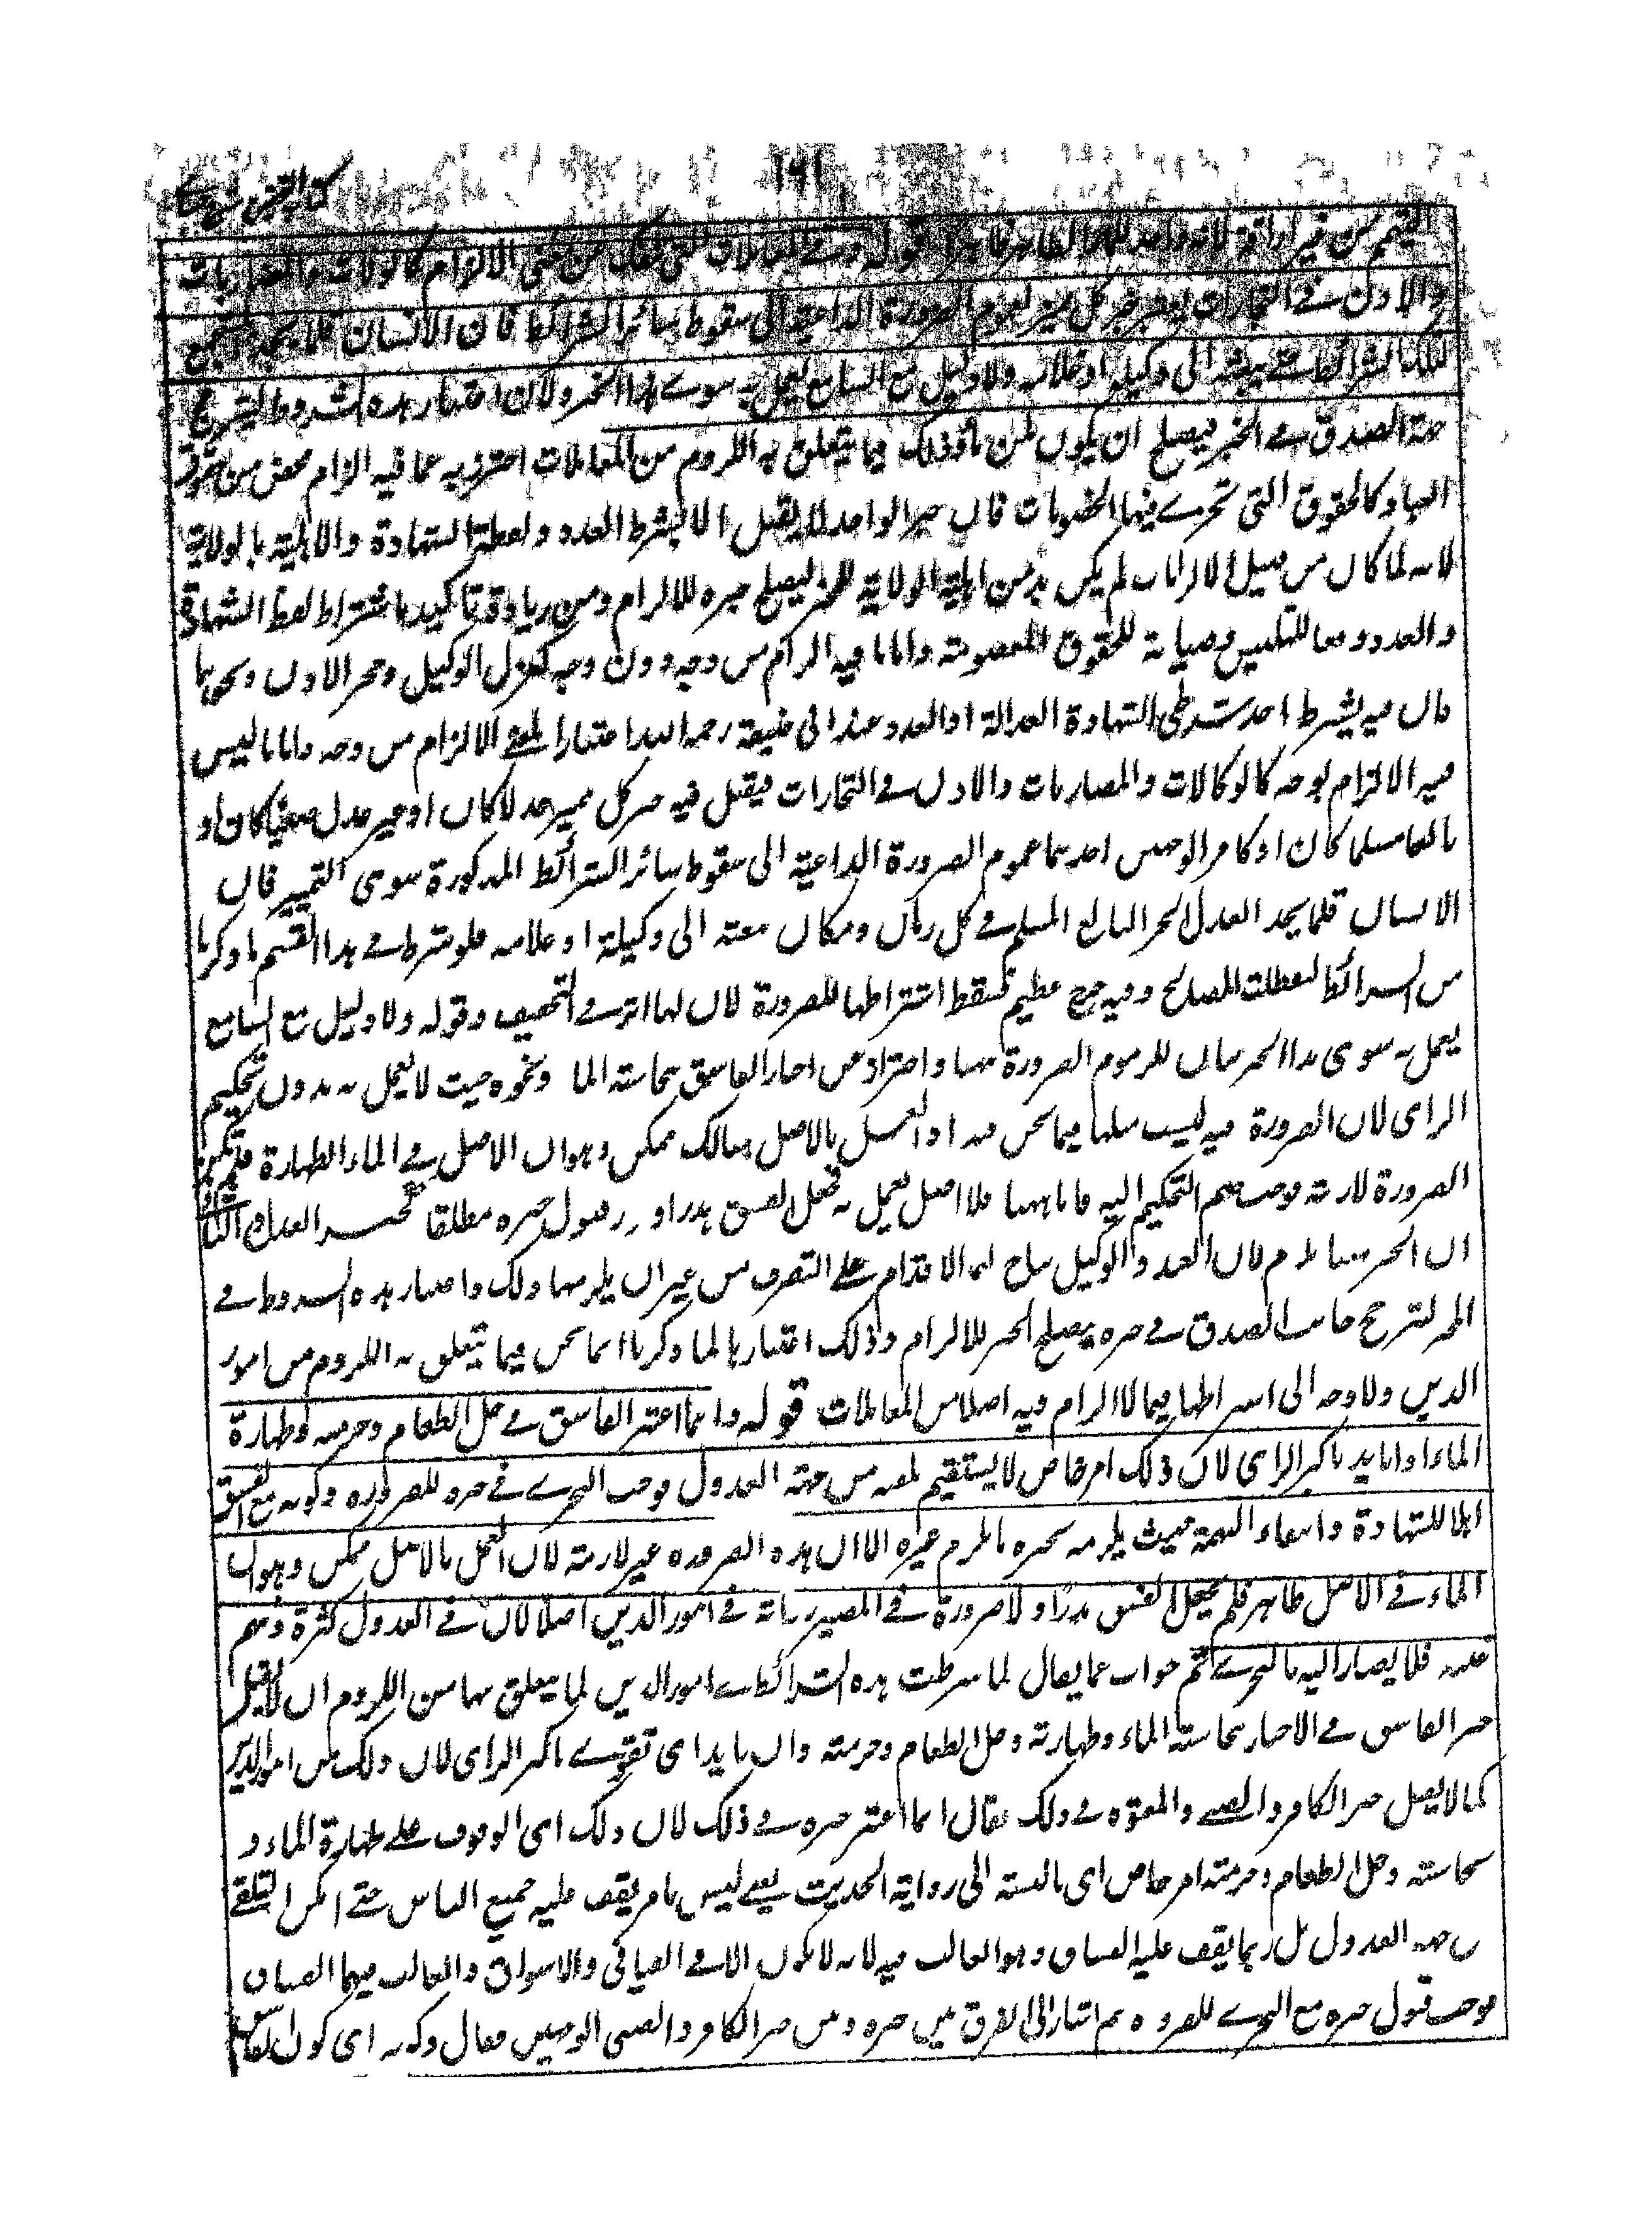 ١٩١
التيمم من غير اراقة لانه واجد للماء الظاهر قوله وفي المعاملات التي تنفك عن معنى الالزام كالوكالات والمضاربات
والاذن في التجارات يعتبر خبر كل مميز لعموم الضرورة الداعية الى سقوط سائر الشرائط فان الانسان قلما يجد المستجمع
لتلك الشرائط يبعثه الى وكيله او غلامه ولا دليل مع السامع يعمل به سوى هذا الخبر ولان اعتبار هذه الشروط ليترجح
جهة الصدق في الخبر فيصلح ان يكون ملزما وذلك فيما يتعلق به اللزوم من المعاملات احترز به عما فيه الزام محض من حقوق
العباد كالحقوق التي تجرى فيها الخصومات فان خبر الواحد لا يقبل الا بشرط العدد ولفظة الشهادة والاهلية بالولاية
لانه لما كان من قبيل الالزامات لم يكن بد من اهلية الولاية للمخبر ليصلح خبره للالزام ومن زيادة تاكيد باشتراط لفظ الشهادة
والعدد دفعا للتلبيس وصيانة للحقوق المعصومة واما ما فيه الزام من وجه دون وجه كعزل الوكيل وحجر الماذون ونحوهما
فان فيه يشترط احد شرطي الشهادة العدالة او العدد عند ابى حنيفة رحمه الله اعتبارا لمعنى الالزام من وجه واما ما ليس
فيه الالزام بوجه كالوكالات والمضاربات والاذن في التجارات فيقبل فيه خبر كل مميز عدلا كان او غير عدل صبيا كان او
بالغا مسلما كان او كافرا لوجهين احدهما عموم الضرورة الداعية الى سقوط سائر الشرائط المذكورة سوى التمييز فان
الانسان قلما يجد العدل الحر البالغ المسلم في كل زمان ومكان يبعثه الى وكيله او غلامه فلو شرط في هذا القسم ما ذكرنا
من الشرائط لتعطلت المصالح وفيه حرج عظيم فسقط اشتراطها للضرورة لان لها اثر في التخفيف وقوله ولا دليل مع السامع
يعمل به سوى هذا الخبر بيان للزوم الضرورة ههنا واحتراز عن اخبار الفاسق بنجاسة الماء ونحوه حيث لا يعمل به بدون تحكيم
الراى لان الضرورة فيه ليست مثلها فيما نحن فيه اذ العمل بالاصل هنالك ممكن وهو ان الاصل في الماء الطهارة فلم تكن
الضرورة لازمة فوجب ضم التحكيم اليه فاما ههنا فلا اصل يعمل به فجعل الفسق هدرا وقبول خبره مطلقا كخبر العدل والثاني
ان الخبر ههنا غير ملزم لان العبد والوكيل يباح لهما الاقدام على التصرف من غير ان يلزمهما ذلك واعتبار هذه الشروط في
المخبر لترجح جانب الصدق في خبره فيصلح الخبر للالزام وذلك اعتبارها لما ذكرنا انما نحن فيما يتعلق به اللزوم من امور
الدين ولا وجه الى اشتراطها فيما لا الزام فيه اصلا من المعاملات قوله وانما اعتبر الفاسق في حل الطعام وحرمته وطهارة
الماء اذا تايد باكبر الراى لان ذلك امر خاص لا يستقيم تلقيه من جهة العدول فوجب التحرى في خبره للضرورة وكونه مع الفسق
اهلا للشهادة وانتفاء التهمة حيث يلزمه بخبره ما يلزم غيره الا ان هذه الضرورة غير لازمة لان العمل بالاصل ممكن وهو ان
الماء في الاصل طاهر فلم يجعل الفسق هدرا ولا ضرورة في المصير الى روايته في امور الدين اصلا لان في العدول كثرة وبهم
غنية فلا يصار اليه بالتحرى ثم جواب عما يقال لما شرطت هذه الشرائط في امور الدين لما يتعلق بها من اللزوم ان لا يقبل
خبر الفاسق في الاخبار بنجاسة الماء وطهارته وحل الطعام وحرمته وان تايد اى تقوى باكبر الراى لان ذلك من امور الدين
كما لا يقبل خبر الكافر والصبى والمعتوه في ذلك فقال انما اعتبر خبره في ذلك لان ذلك اى الوقوف على طهارة الماء و
نجاسته وحل الطعام وحرمته امر خاص اى بالنسبة الى رواية الحديث يعنى ليس بامر يقف عليه جميع الناس حتى امكن التلقى
من جهة العدول بل ربما يقف عليه الفساق وهو الغالب فيه لانه لا يكون الا في الفيافى والاسواق والغالب فيهما الفساق
فوجب قبول خبره مع التحرى للضرورة ثم اشار الى الفرق بين خبره وبين خبر الكافر والصبى الوجهين فقال وكونه اى كون الفاسق